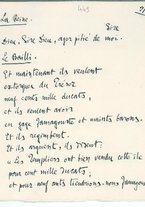 449
La Reine.
Sire
Dieu, Sire Dieu, ayez pitié de moi.
Le Bailli.
Et maintenant ils veulent
extorquer du Trésor
neuf cents mille ducats,
et ils cement avoir
en gage Famagouste et autres bastions.
Et ils regimbent.
Et ils arguent, ils
« les Templiers ont bien vendu cette île
pour cent mille ducats,
et pour neuf cents tiendrions-nous Famagouste